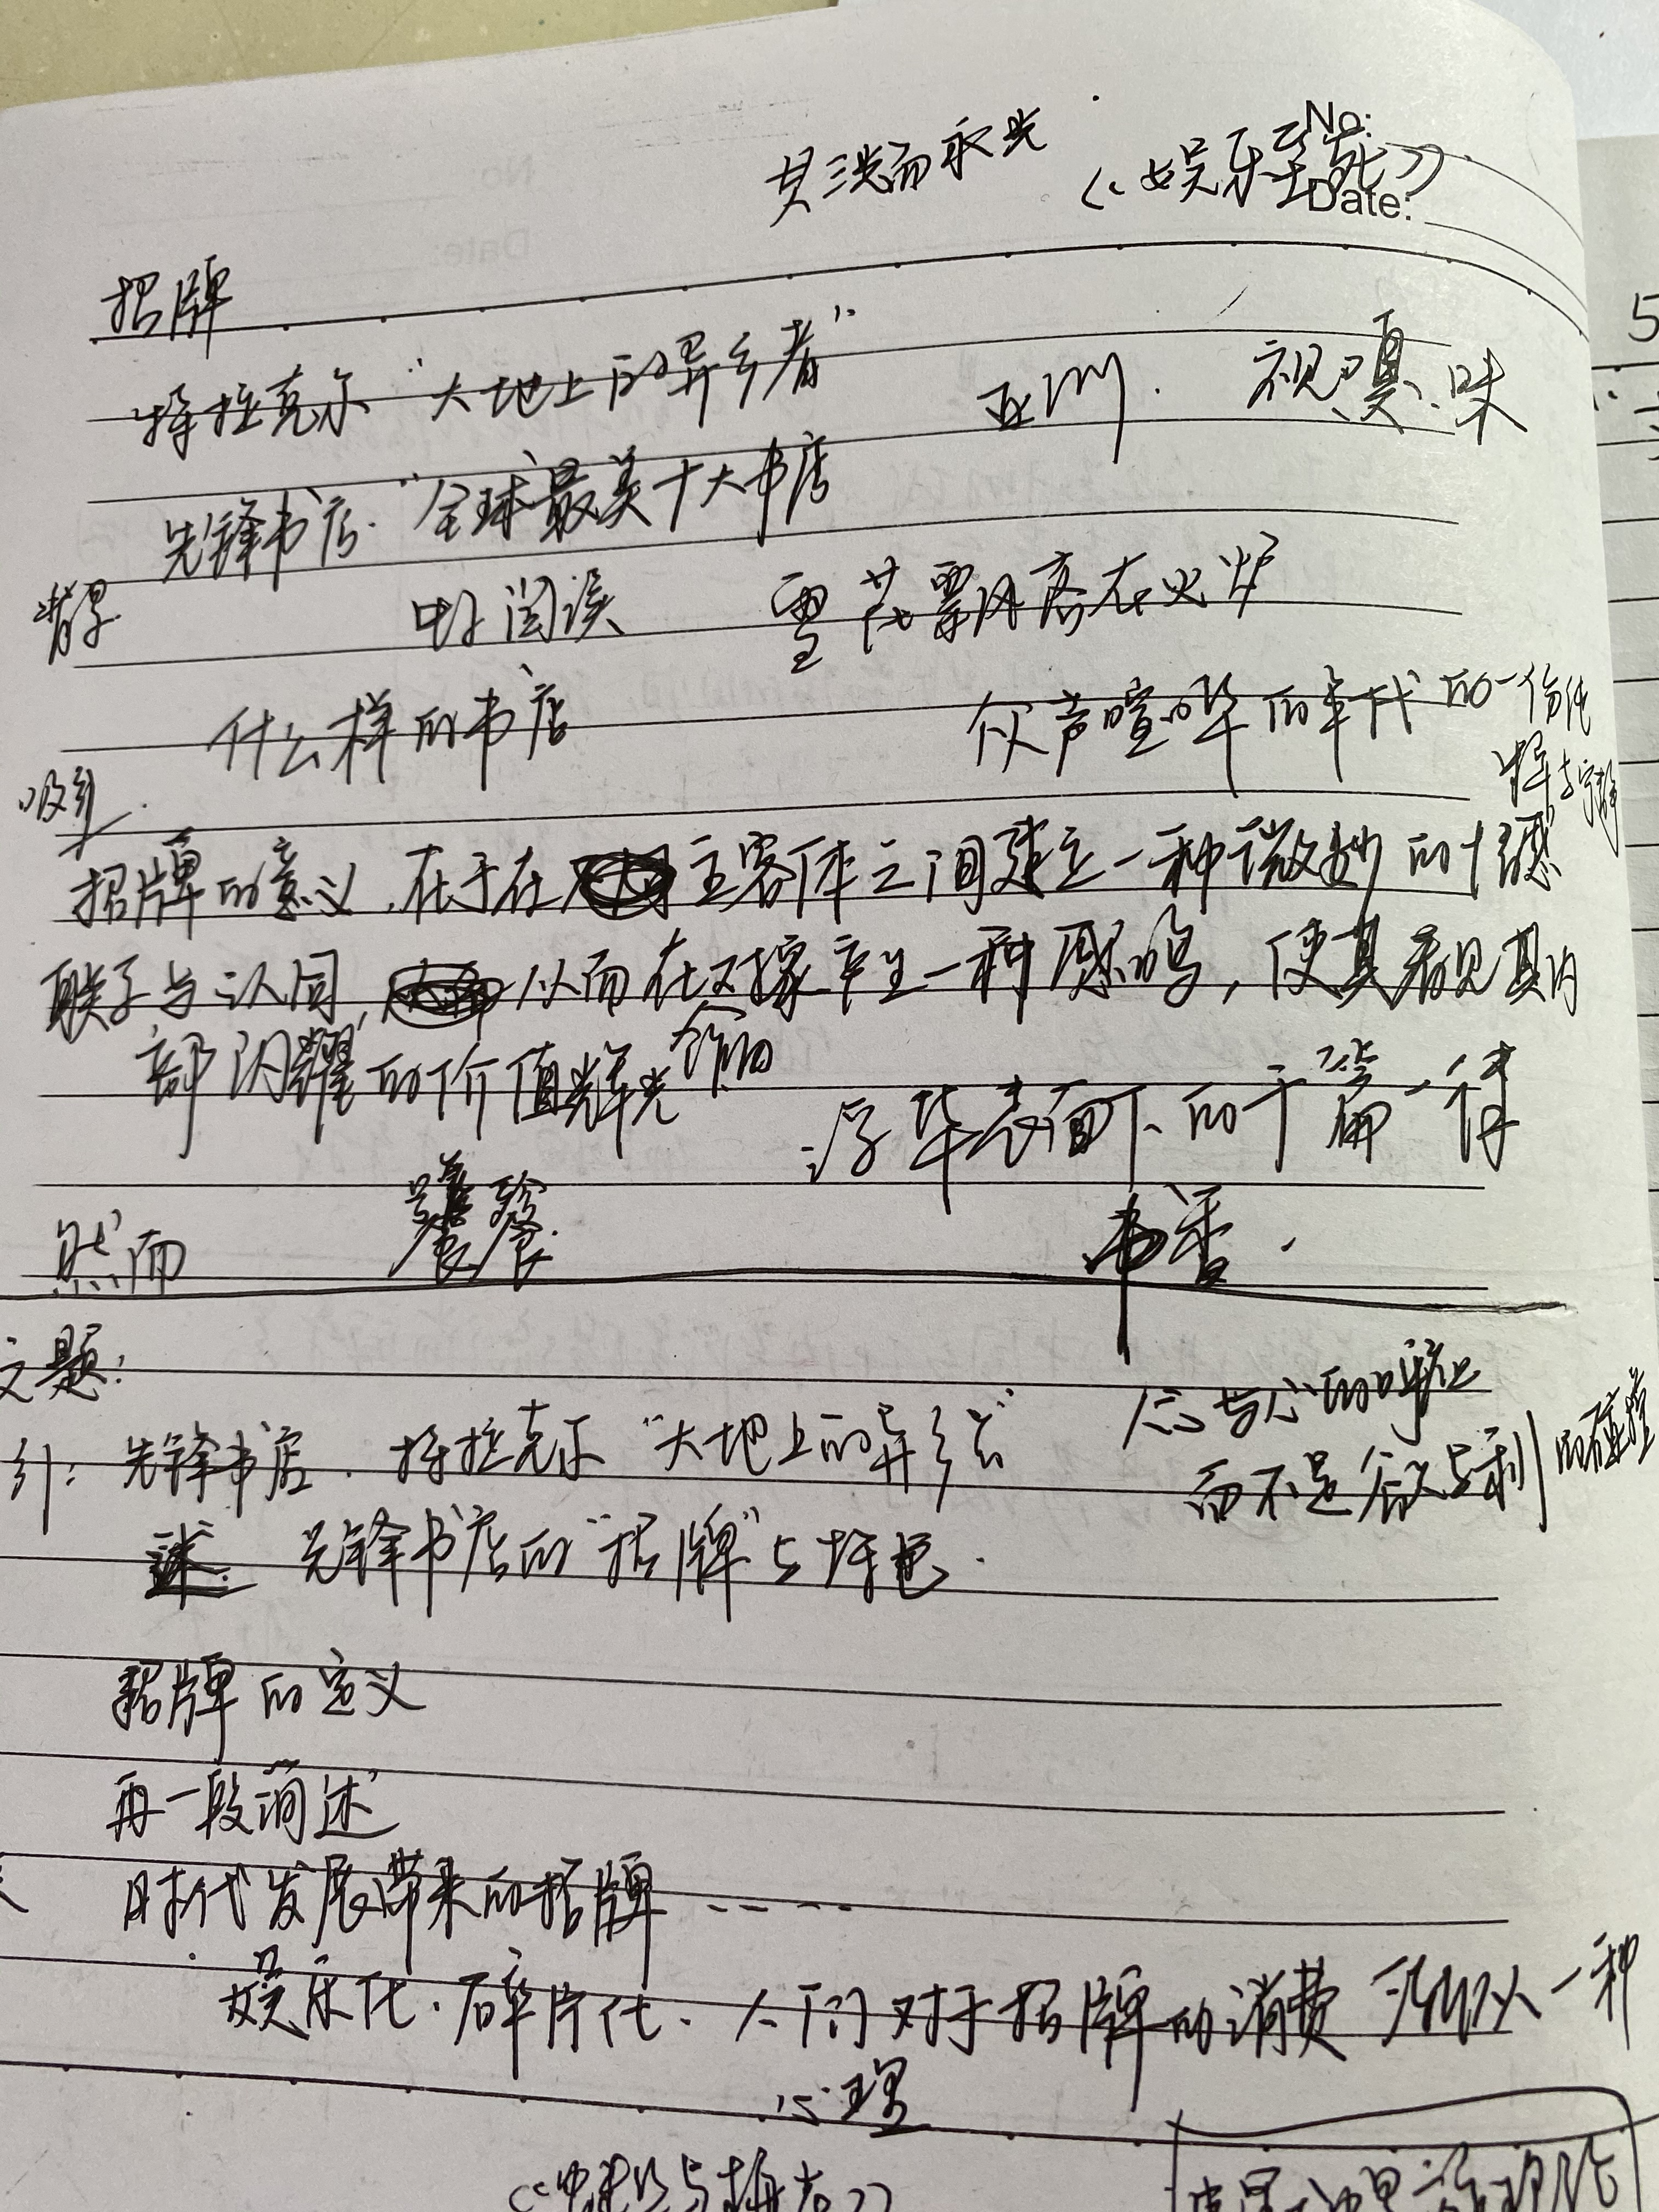 No:
Date:
《娱乐至死》
共三光而永光
招牌
特拉克尔“大地上的异乡者”
亚洲. 视、嗅、味
先锋书店.“全球最美十大书店
背景
阅读 雪花飘落在火炉
什么样的书店
众声喧哗的年代的一份
吸引
招牌的意义,在于在主客体之间建立一种微妙的情感
联系与认同,从而在对象产生一种共鸣,使其看见其内
部闪耀的价值辉光
浮华表面下的千篇一律
然而 饕餮
书香.
文题:
心与心的
引:先锋书店. 特拉克尔“大地上的异乡者”
而不是 与利的碰撞
述: 先锋书店的“招牌”与
招牌的定义
再一段简述
时代发展带来的招牌-----
娱乐化.碎片化、人们对于招牌的消费 一种
心理